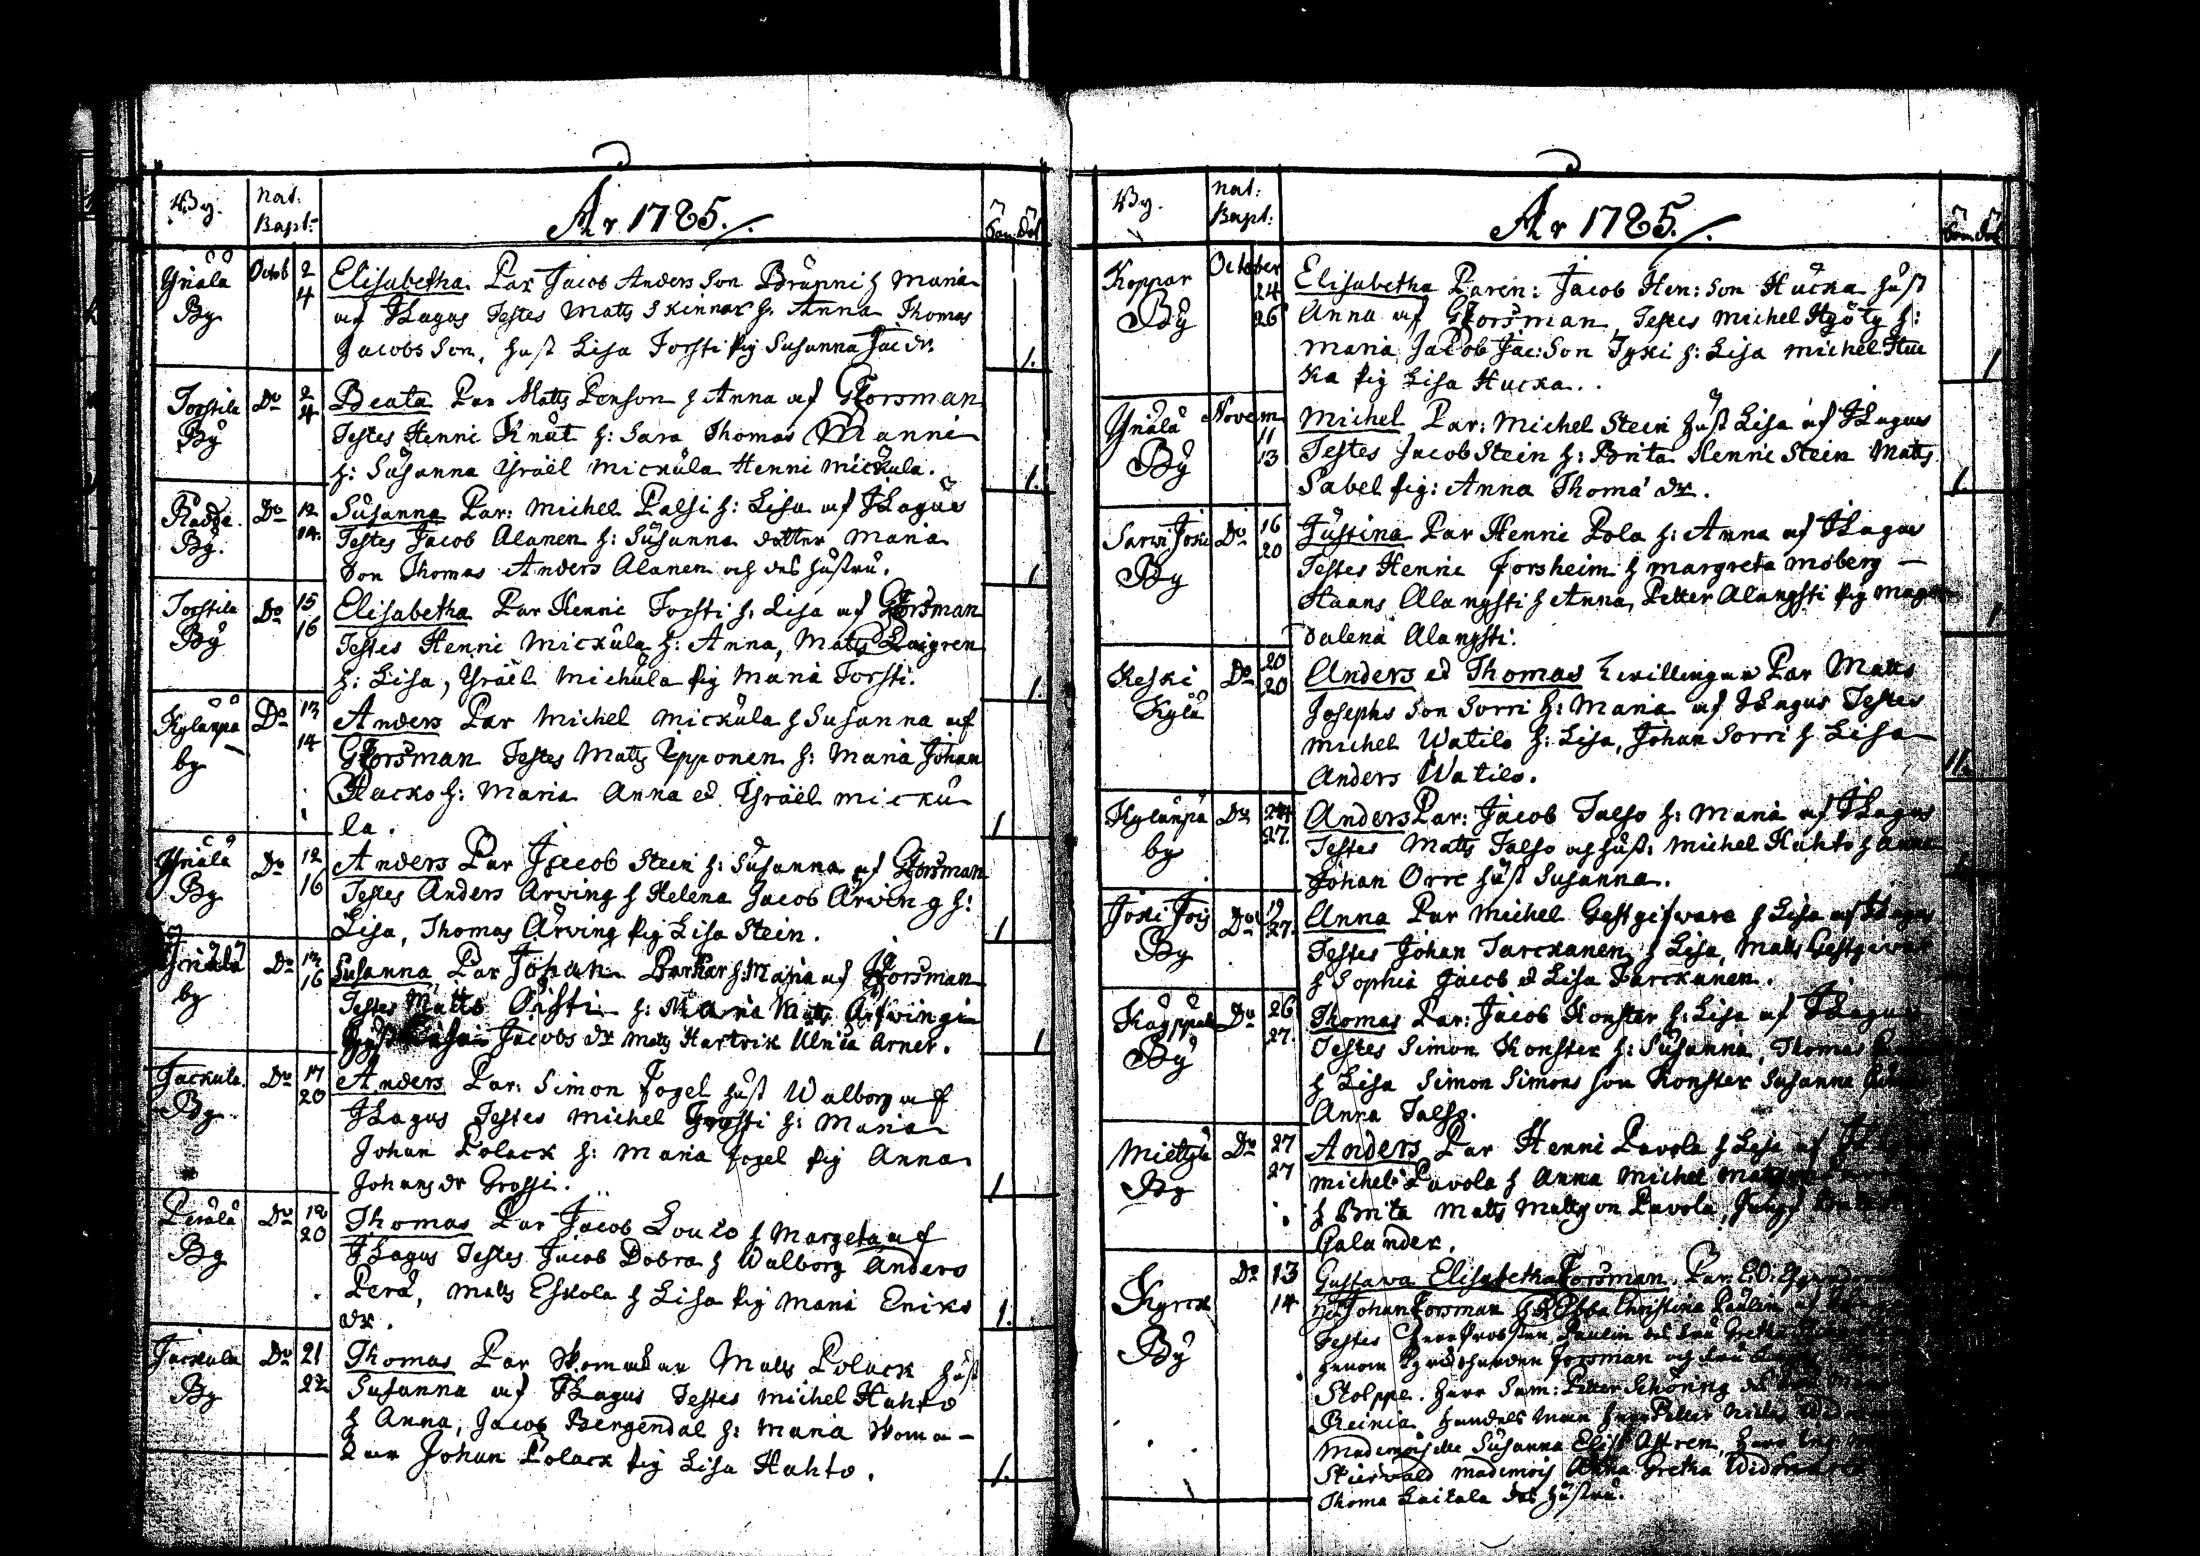 By.
Nat.
Bapt:
År 1785.
Son. Dot.
Ynälä
By
Octob 2
4
Elisabetha. Par Jacob Anders Son Brünni h Maria
af JLagus Testes Matts Skinnar h: Anna Thomas
Jacobs Son, Hust Lisa Torsti pig Susanna Jac dr.
1.
Torstila
By
Do 2
4
Beata Par Matts Penson h Anna af GForsman
Testes Henni Knut h: Sara Thomas Manni
h: Susanna Ysräel Mickula Henni Mickula.
1.
By.
Do 12
14.
Susanna Par: Michel Palsi h: Lisa af JLagus
Testes Jacob Alanen h: Susanna dotter Maria
Son Thomas Anders Alanen och des hustru.
1
Torstila
By
Do 15
16
Elisabetha Par Henni Torsti h: Lisa af GForsman
Testes Henni Mickula h: Anna, Matts
h: Lisa, Ysräel Michula pig Maria Torsti.
1.
Kylänpä
by
Do 13
14
Anders Par Michel Mickula h Susanna af
GForsman Testes Matts Upponen h: Maria Johan
Hacko h: Maria Anna et Ysräel Micku
la.
1
Ynälä
By
Do 12
16
Anders Par Jacob Stein h: Susanna af GForsman
Testes Anders Arving h Helena Jacob Arving h:
Lisa, Thomas Arving pig Lisa Stein.
1
Ynälä
by
Do
16
Susanna Par Johan h: Maria af GForsman
Testes Matts h: Maria Matts
Jacobs dr Matts Hartvik Arner.
1
Jackula
By
Do 17
20
Anders Par: Simon Fogel Hust Walborg af
JLagus Testes Michel Grossi h: Maria
Johan Polack h: Maria Fogel pig Anna
Johans dr Grossi.
1
Perälä
By
Do 18
20
Thomas Par Jacob h Margeta af
JLagus Testes Jacob Dobra h Walborg Anders
Perä, Matts Eskola h Lisa pig Maria Eriks
dr.
1.
Jackula
By
Do 21
22
Thomas Par Skomakar Matts Polack Hust
Susanna af JLagus Testes Michel Hahto
h Anna, Jacob Bergendal h: Maria Skoma-
kar Johan Polack pig Lisa Hahto.
1.
By.
Nat:
Bapt:
År 1785.
Son. Dot.
Koppar
By
October
24
26
Elisabetha Paren: Jacob Hen: Son Hucka Hust
Anna af GForsman, Testes Michel h:
Maria Jacob Jac: Son Tyki h: Lisa Michel Huc
ka pig Lisa Hucka.
1
Ynälä
By
Novem
11
13
Michel Par: Michel Stein Hust Lisa af JLagus
Testes Jacob Stein h: Brita Henni Stein Matts
Sabel pig: Anna Thoma dr.
1.
Sarvi Joki
By
Do 16
20
Justina Par Henni Pola h: Anna af JLagus
Testes Henni Forsheim h Margreta Moberg —
Haans Alangsti h Anna, Petter Alangsti pig Mag
dalena Alangsti.
1
Keski
Kylä
Do 20
20
Anders et Thomas twillingar Par Matts
Josephs Son Sorri h: Maria af JLagus Testes
Michel Watilo h: Lisa, Johan Sorri h Lisa
Anders Watilo.
11.
Kylänpä
by
Do 24
27.
Anders Par: Jacob Talso h: Maria af JLagus
Testes Matts Talso och hust: Michel Hahto h Anna
Johan Orre Hust Susanna.
1.
By
Do 19
27.
Anna Par Michel Gestgifvare h Lisa af JLagus
Testes Johan Tarckanen h Lisa, Matts
h Sophia Jacob et Lisa Tarckanen.
By
Do 26
27.
Thomas Par: Jacob Konster h: Lisa af JLagus
Testes Simon Konster h: Susanna, Thomas
h Lisa Simon Simons son Konster Susanna
Anna Talso.
Mietylä
By
Do 27
27
Anders Par Henni Pavola h Lisa af
Michel Pavola h Anna Michel
h Brita Matts Mattson Pavola,
Calander.
Kyrck
By
Do 13
14
Gustava Elisabetha Forsman. Par:
Johan Forsman Ebba Christina Paulin af
Testes Herr Prosten Paulin des Fru Gretha
Forsman och
Stolppe. Herr Sam: Petter Schöring
Reinia Handels Man Herr Petter
Mademoiselle Susanna Elis Astren, Herr
Mademois Anna Gretha
Thoma Laikala des hustru.